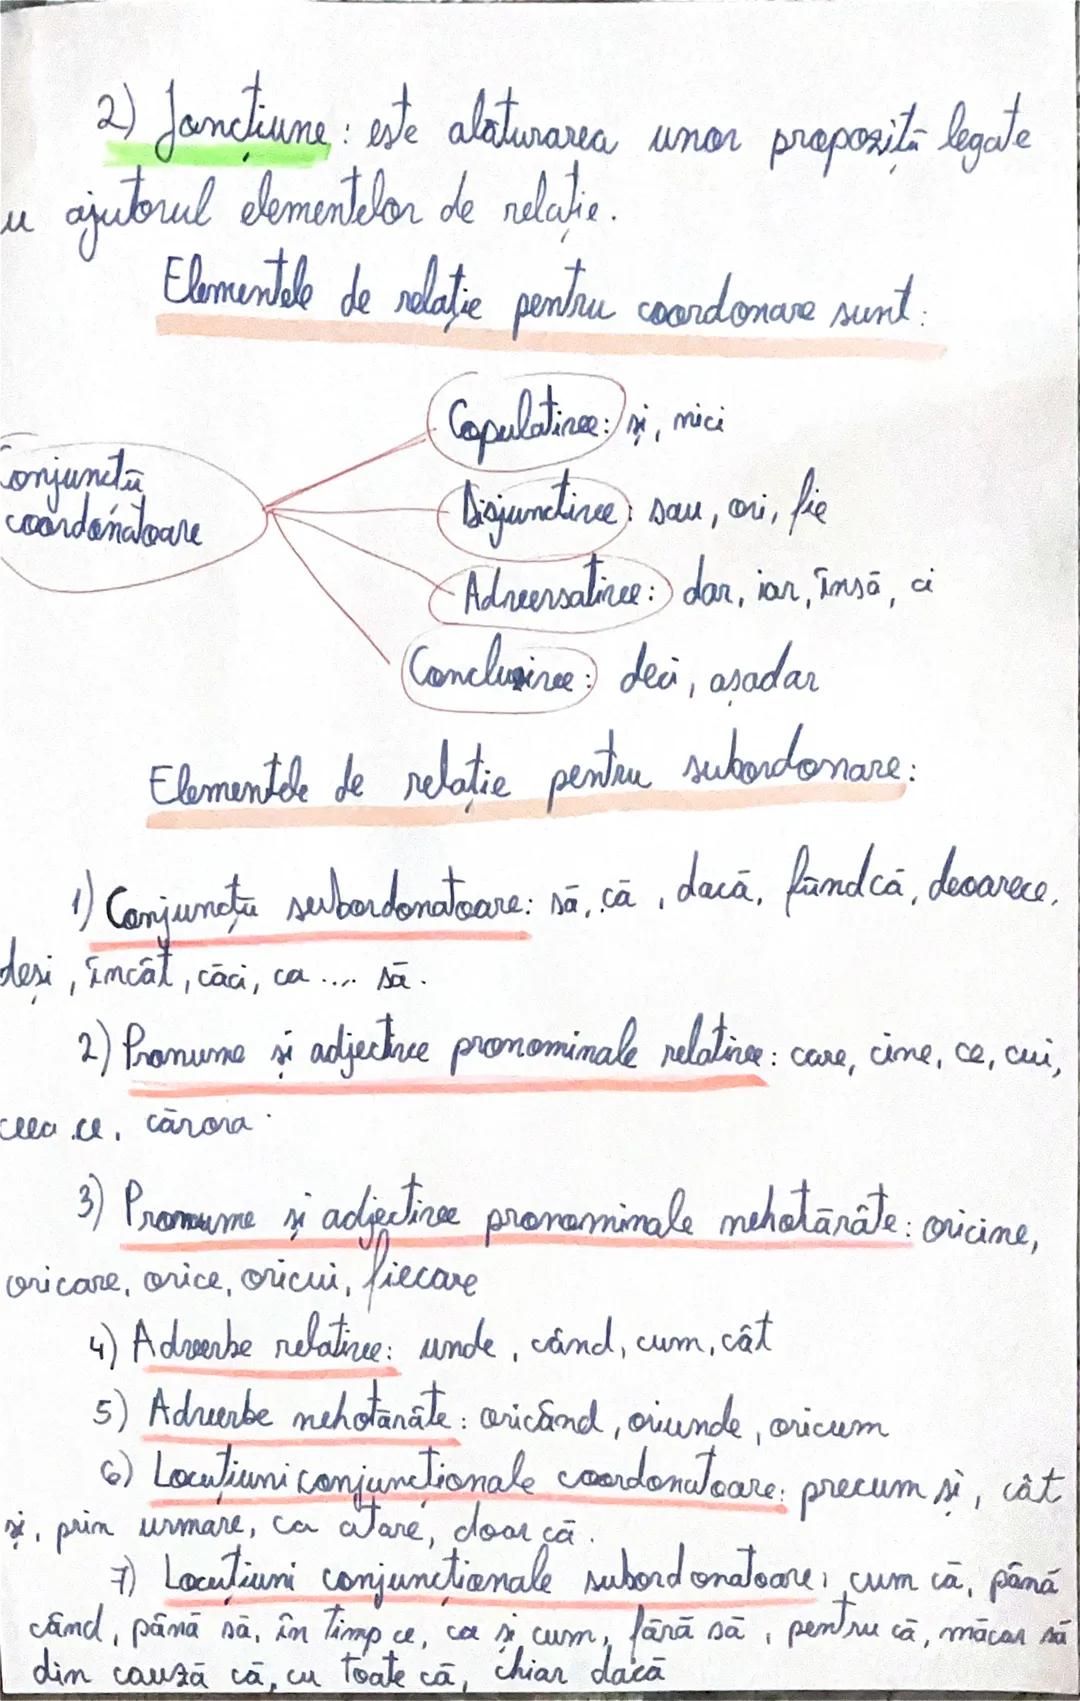 2) Joncțiune: este alăturarea unor propoziții legate
cu ajutorul elementelor de relație.
Elementele de relație pentru coordonare sunt:
Conjuncții
coordonatoare
Copulative: și, nici
Disjunctive: sau, ori, fie
Adversative: dar, iar, însă, ci
Conclusive: deci, așadar
Elementele de relație pentru subordonare:
1) Conjuncții subordonatoare: să, că, dacă, fiindcă, deoarece,
deși, încât, căci, ca .... să.
2) Pronume și adjective pronominale relative: care, cine, ce, cui,
ceea ce, cărora.
3) Pronume și adjective pronominale nehotărâte: oricine,
oricare, orice, oricui, fiecare
4) Adverbe relative: unde, când, cum, cât
5) Adverbe nehotărâte: oricând, oriunde, oricum
6) Locuțiuni conjuncționale coordonatoare: precum și, cât
și, prin urmare, ca atare, doar că.
7) Locuțiuni conjuncționale subordonatoare: cum că, până
când, până să, în timp ce, ca și cum, fără să, pentru că, măcar să
din cauză că, cu toate că, chiar dacă